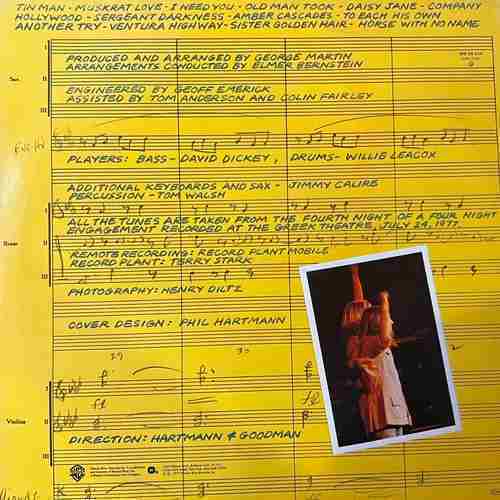 TIN MAN - MUSKRAT LOVE - I NEED YOU - OLD MAN TOOK - DAISY JANE - COMPANY
HOLLYWOOD - SERGEANT DARKNESS - AMBER CASCADES - TO EACH HIS OWN
ANOTHER TRY - VENTURA HIGHWAY - SISTER GOLDEN HAIR - HORSE WITH NO NAME
PRODUCED AND ARRANGED BY GEORGE MARTIN
ARRANGEMENTS CONDUCTED BY ELMER BERNSTEIN
I
Sax
II
ENGINEERED BY GEOFF EMERICK
ASSISTED BY TOM ANDERSON AND COLIN FAIRLEY
III
PLAYERS: BASS - DAVID DICKEY, DRUMS - WILLIE LEACOX
ADDITIONAL KEYBOARDS AND SAX - JIMMY CALIRE
PERCUSSION - TOM WALSH
I
ALL THE TUNES ARE TAKEN FROM THE FOURTH NIGHT OF A FOUR NIGHT
ENGAGEMENT RECORDED AT THE GREEK THEATRE, JULY 24, 1977
II
REMOTE RECORDING: RECORD PLANT MOBILE
RECORD PLANT: TERRY STARK
III
PHOTOGRAPHY: HENRY DILTZ
COVER DESIGN: PHIL HARTMANN
29 30
I
Violins
II
DIRECTION: HARTMANN & GOODMAN
III